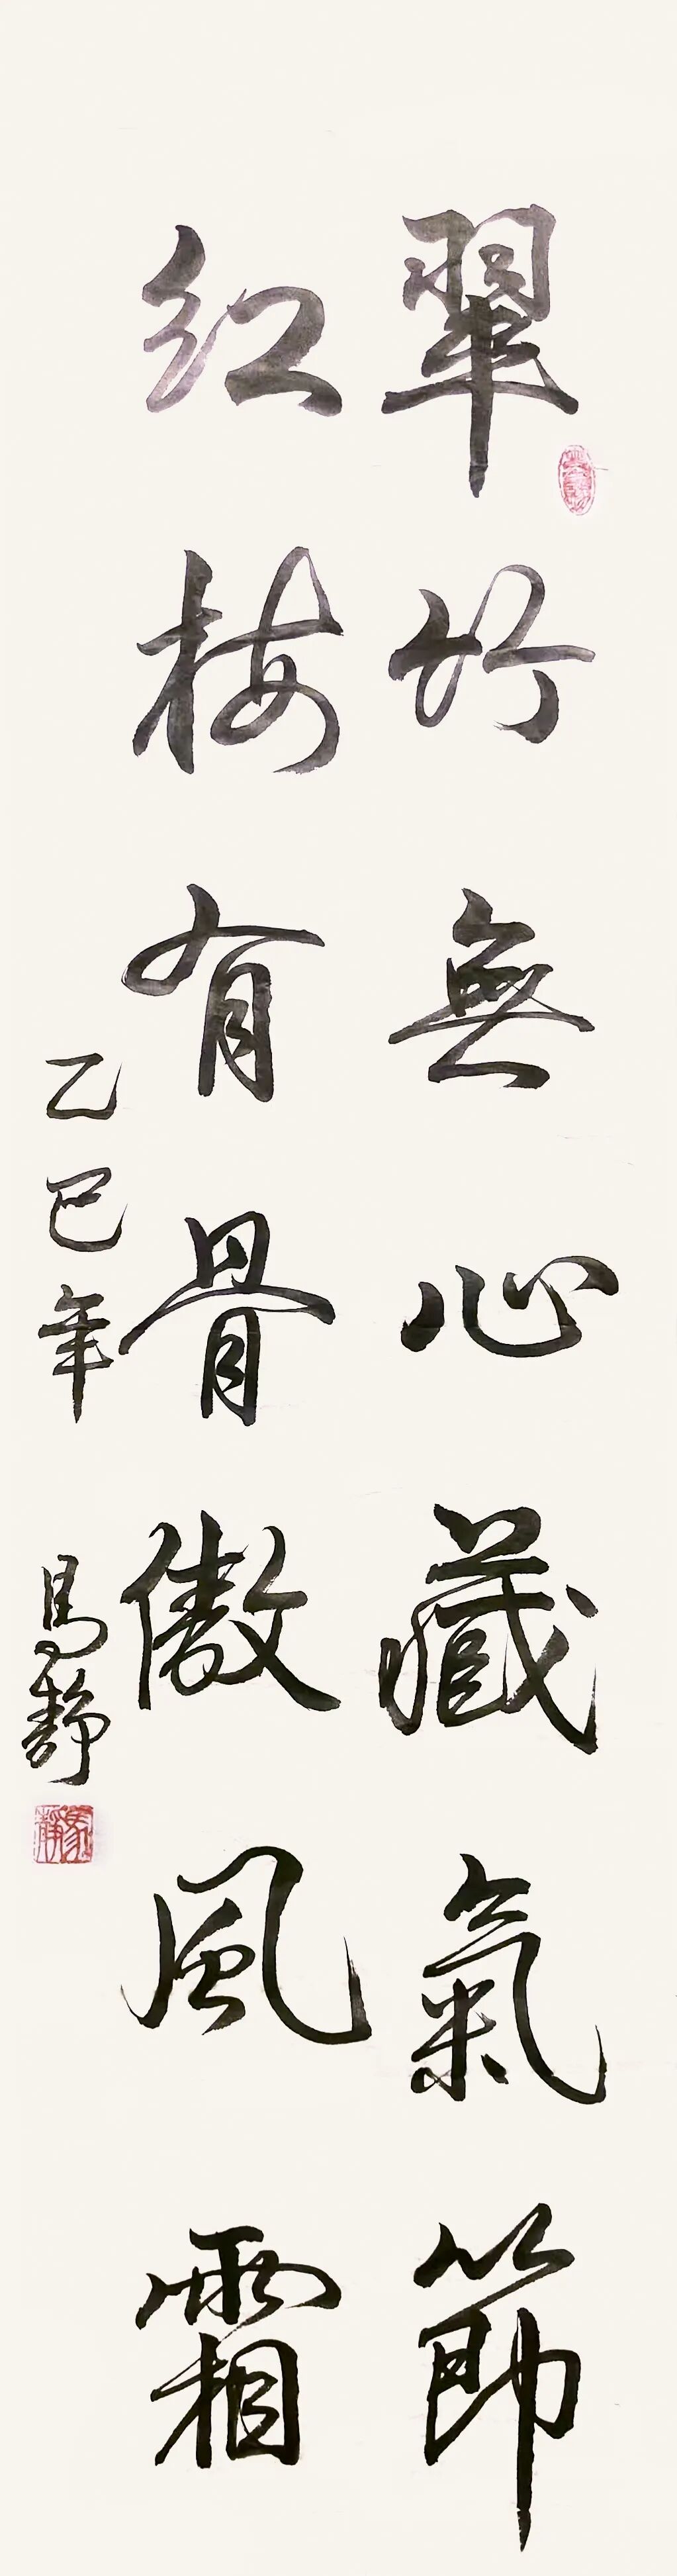 翠竹無心藏氣節
紅梅有骨傲風霜
乙巳年 馬靜
馬靜